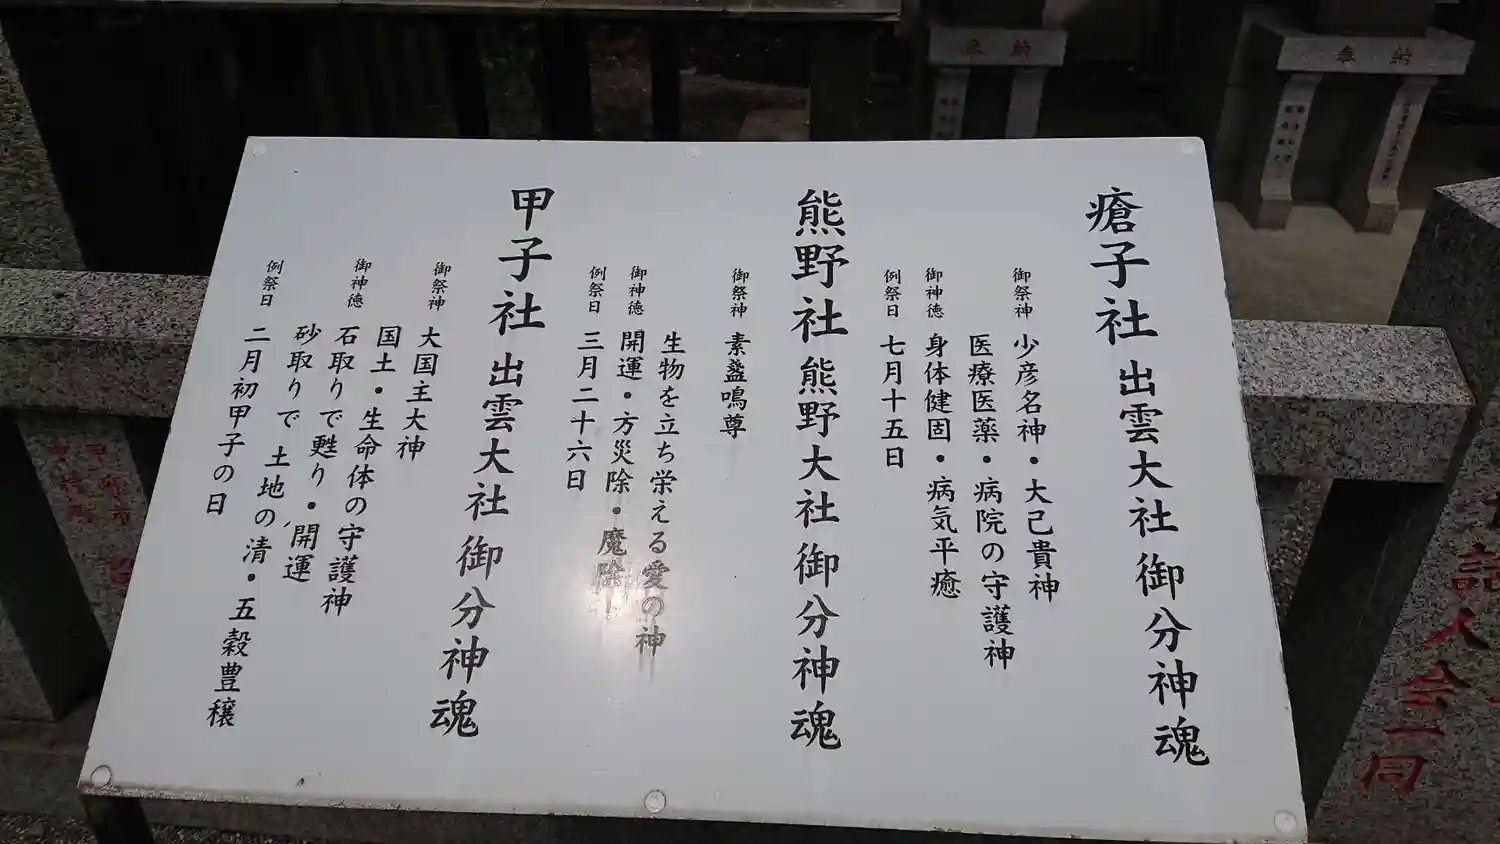 瘡子社 出雲大社 御分神魂
御祭神 少彦名神・大己貴神
医療医薬・病院の守護神
御神徳 身体健固・病気平癒
例祭日 七月十五日
熊野社 熊野大社 御分神魂
御祭神 素盞鳴尊
生物を立ち栄える愛の神
御神徳 開運・方災除・魔除
例祭日 三月二十六日
甲子社 出雲大社 御分神魂
御祭神 大国主大神
国土・生命体の守護神
御神徳 石取りで甦り・開運
砂取りで 土地の清・五穀豊穣
例祭日 二月初甲子の日
奉納
奉納
話人会一同